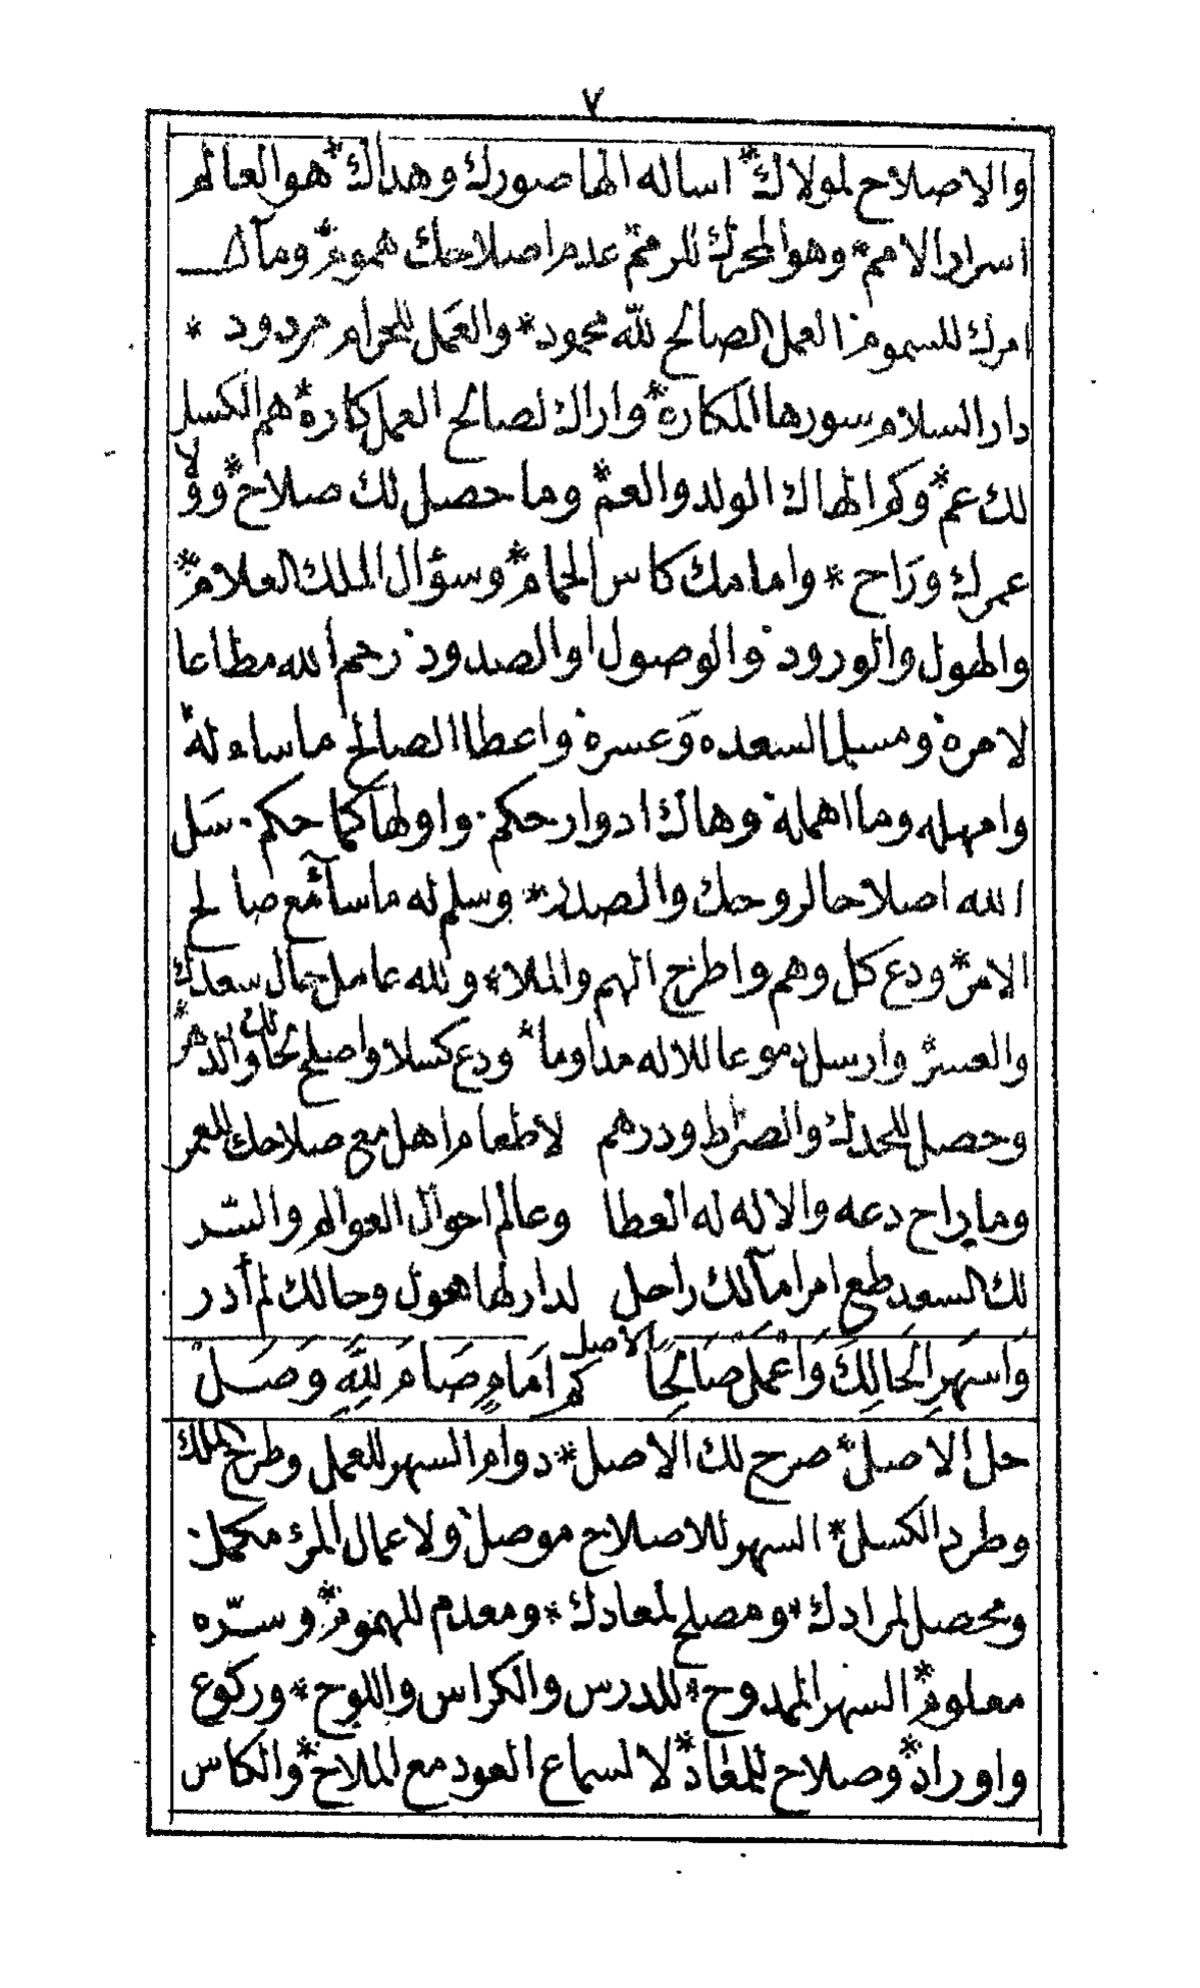 ٧
والاصلاح لمولاك * اساله الها صورك وهداك * هو العالم
اسرار الامم * وهو المحرك للرمم عدم اصلاحك هموم * ومآل
امرك للسموم * العمل الصالح لله محمود * والعمل للحرام مردود *
دار السلام سورها المكاره * واراك لصالح العمل كاره * هم الكسل
لك عم * وكم الهاك الولد والعم * وما حصل لك صلاح * وولا
عمرك وراح * وامامك كاس الحمام * وسؤال الملك العلام *
والهول والورود * والوصول او الصدود * رحم الله مطاعا
لامره * ومسهل السعده وعسره * واعطا الصالح ما ساء له *
وامهله وما اهمله * وهاك ادوار حكم * واولها كما حكم * سل
الله اصلاحا لروحك والصدر * وسلم له ما سآ مع صالح
الامر * ودع كل وهم واطرح الهم والملا * ولله عامل حال سعدك
والعسر * وارسل دموعا للاله مداوما * ودع كسلا واصلح لحالك والدهر *
وحصل للحدك والصراط ودرهم لاطعام اهل مع صلاحك للعمر
وما راح دعه والاله له العطا وعالم احوال العوالم والسّر
لك السعد طع امرا مآلك راحل لدار لها هول وحالك لم أدر
وَاسهرِ لِحَالِكَ وَاعْمَلْ صَالِحًا الاصل كم امامٍ صَامَ لِلّٰهِ وَصَلّ
حل الاصل * صرح لك الاصل * دوام السهر للعمل وطرح الملك
وطرد الكسل * السهر للاصلاح موصل * ولاعمال المرء مكمل *
ومحصل لمرادك * ومصلح لمعادك * ومعدم للهموم * وسّره
معلوم * السهر الممدوح * للدرس والكراس واللوح * وركوع
واوراد * وصلاح للمعاد * لا لسماع العود مع الملاح * والكاس